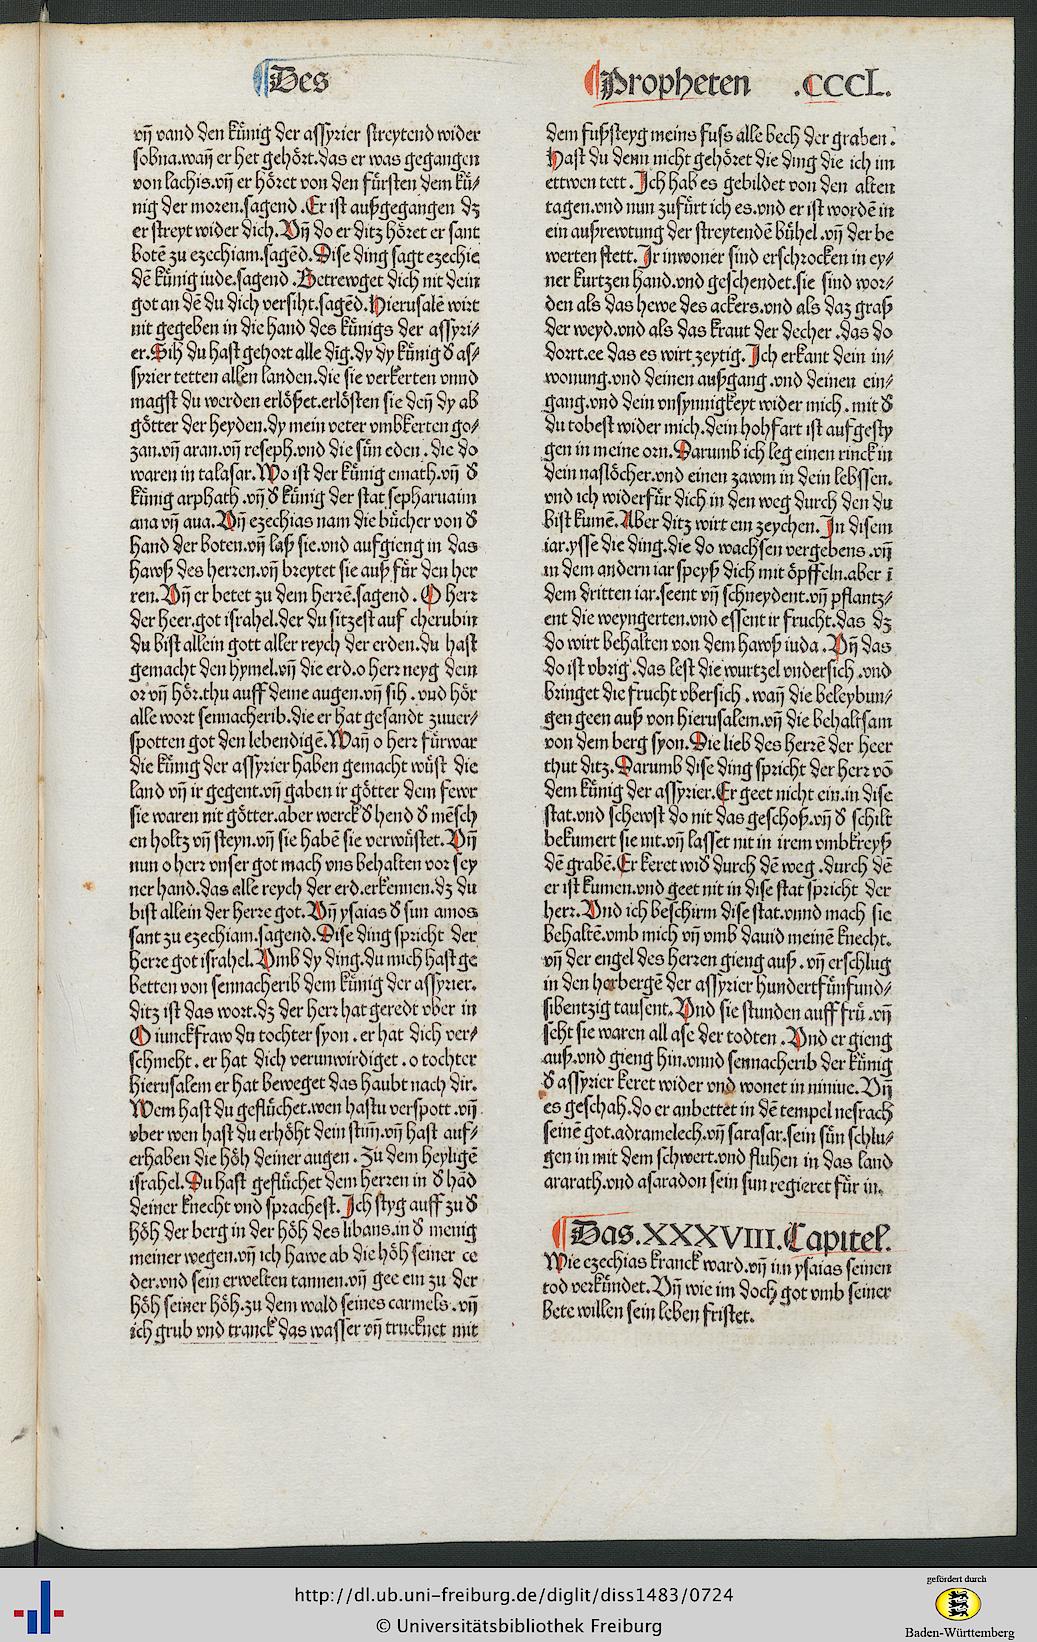 Des
Propheten .CCCL.
vñ vand den kűnig der assyrier streytend wider
lobna.wañ er het gehôrt.das er was gegangen
von lachis.vñ er hôret von den fürsten dem kű⸗
nig der moren.sagend .Er ist außgegangen dz
er streyt wider dich. Vñ do er ditz hôret er sant
botē zu ezechiam.sagēd. Dise ding sagt ezechie
dē kűnig iude.sagend .Betrewget dich nit dein
got an dē du dich versihst.sagēd. Hierusalē wirt
nit gegeben in die hand des kűnigs der assyri⸗
er.Sih du hast gehort alle dīg.dy dy kűnig d̕ as⸗
syrier tetten allen landen.die sie verkerten vnnd
magst du werden erlôßet.erlôsten sie deñ dy ab
götter der heyden.dy mein veter vmbkerten go⸗
zan.vñ aran.vñ reseph.vnd die sűn eden . die do
waren in talasar.Wo ist der kűnig emath.vñ d̕
kűnig arphath .vñ d̕ kűnig der stat sepharuaim
ana vñ aua. Vñ ezechias nam die bűcher von d̕
hand der boten.vñ laß sie.vnd aufgieng in das
hawß des herren.vñ breytet sie auß fűr den her
ren. Vñ er betet zu dem herrē.sagend . O herr
der heer.got israhel.der du sitzest auf cherubin
du bist allein gott aller reych der erden.du hast
gemacht den hymel.vñ die erd.o herr neyg dein
or vñ hôr.thu auff deine augen.vñ sih . vnd hôr
alle wort sennacherib.die er hat gesandt zuuer⸗
spotten got den lebendigē.Wañ o herr fűrwar
die kűnig der assyrier haben gemacht wűst die
land vñ ir gegent.vñ gaben ir götter dem fewr
sie waren nit götter.aber werck d̕ hend d̕ mēsch
en holtz vñ steyn.vñ sie habē sie verwűstet. Vñ
nun o herr vnser got mach vns behalten vor sey
ner hand.das alle reych der erd.erkennen.dz du
bist allein der herre got. Vñ ysaias d̕ sun amos
sant zu ezechiam.sagend. Dise ding spricht der
herre got israhel. Vmb dy ding.du mich hast ge
betten von sennacherib dem kűnig der assyrier.
ditz ist das wort.dz der herr hat geredt vber in
O iunckfraw du tochter syon . er hat dich ver⸗
schmeht . er hat dich verunwirdiget . o tochter
hierusalem er hat beweget das haubt nach dir.
Wem hast du geflűchet.wen hastu verspott .vñ
vber wen hast du erhôht dein stim̄.vñ hast auf⸗
erhaben die hôh deiner augen . Zu dem heyligē
israhel. Du hast geflűchet dem herren in d̕ hād
deiner knecht vnd sprachest. Ich styg auff zu d̕
hôh der berg in der hôh des libans.in d̕ menig
meiner wegen.vñ ich hawe ab die hôh seiner ce
der.vnd sein erwelten tannen.vñ gee ein zu der
hôh seiner hôh.zu dem wald seines carmels.vñ
ich grub vnd tranck das wasser vñ trucknet mit
dem fußsteyg meins fuss alle bech der graben.
Hast du denn nicht gehôret die ding die ich im
ettwen tett. Ich hab es gebildet von den alten
tagen.vnd nun zufűrt ich es.vnd er ist wordē in
ein außrewtung der streytendē bűhel .vñ der be
werten stett. Ir inwoner sind erschrocken in ey⸗
ner kurtzen hand.vnd geschendet.sie sind wor⸗
den als das hewe des ackers.vnd als daz graß
der weyd.vnd als das kraut der decher .das do
dorrt.ee das es wirt zeytig. Ich erkant dein in⸗
wonung.vnd deinen außgang .vnd deinen ein⸗
gang.vnd dein vnsynnigkeyt wider mich . mit d̕
du tobest wider mich.dein hohfart ist aufgesty
gen in meine orn. Darumb ich leg einen rinck in
dein naslöcher.vnd einen zawm in dein lebssen.
vnd ich widerfűr dich in den weg durch den du
bist kumē. Aber ditz wirt ein zeychen. In disem
iar.ysse die ding.die do wachsen vergebens .vñ
in dem andern iar speyß dich mit öpffeln.aber ī
dem dritten iar.seent vñ schneydent.vñ pflantz⸗
ent die weyngerten.vnd essent ir frucht.das dz
do wirt behalten von dem hawß iuda . Vñ das
do ist vbrig .das lest die wurtzel vndersich .vnd
bringet die frucht vbersich . wañ die beleybun⸗
gen geen auß von hierusalem.vñ die behaltsam
von dem berg syon. Die lieb des herrē der heer
thut ditz. Darumb dise ding spricht der herr vō
dem kűnig der assyrier. Er geet nicht ein.in dise
stat.vnd schewst do nit das geschoß.vñ d̕ schilt
bekumert sie nit.vñ lasset nit in irem vmbkreyß
dē grabē. Er keret wid̕ durch dē weg .durch dē
er ist kumen.vnd geet nit in dise stat spricht der
herr. Vnd ich beschirm dise stat.vnnd mach sie
behaltē.vmb mich vñ vmb dauid meinē knecht.
vñ der engel des herren gieng auß . vñ erschlug
in den herbergē der assyrier hundertfűnfund⸗
sibentzig tausent. Vnd sie stunden auff frű .vñ
seht sie waren all ase der todten . Vnd er gieng
auß.vnd gieng hin.vnnd sennacherib der kűnig
d̕ assyrier keret wider vnd wonet in niniue. Vñ
es geschah.do er anbettet in dē tempel nesrach
seinē got.adramelech.vñ sarasar.sein sűn schlu⸗
gen in mit dem schwert.vnd fluhen in das land
ararath.vnd asaradon sein sun regieret fűr in.
Das.XXXVIII.Capitel.
Wie ezechias kranck ward.vñ im ysaias seinen
tod verkűndet. Vñ wie im doch got vmb seiner
bete willen sein leben fristet.
http://dl.ub.uni-freiburg.de/diglit/diss1483/0724
© Universitätsbibliothek Freiburg
gefördert durch
Baden-Württemberg